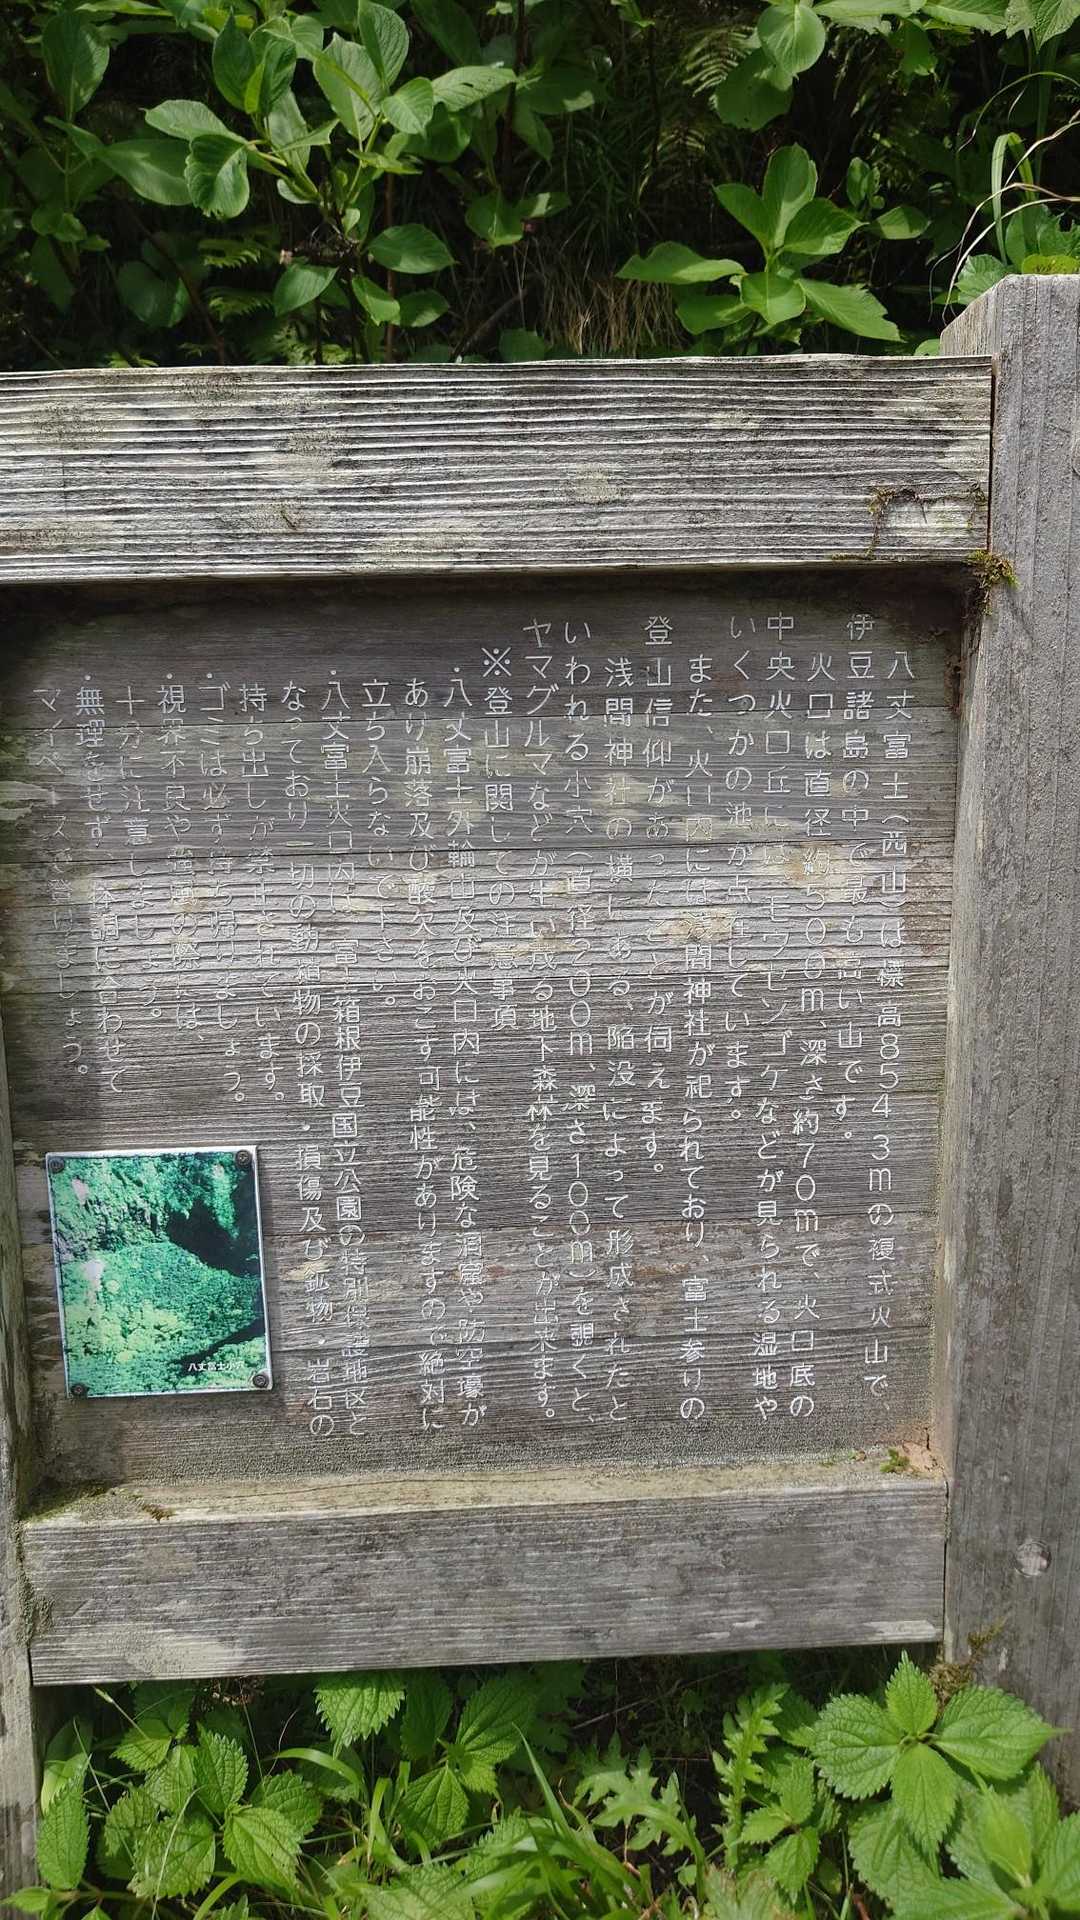 八丈富士(西山)は標高854.3mの複式火山で、
伊豆諸島の中で最も高い山です。
火口は直径約500m、深さ約70mで、火口底の
中央火口丘にはモウセンゴケなどが見られる湿地や
いくつかの池が点在しています。
また、火口内には浅間神社が祀られており、富士参りの
登山信仰があったことが伺えます。
浅間神社の横にある、陥没によって形成されたと
いわれる小穴(直径200m、深さ100m)を覗くと、
ヤマグルマなどが生い茂る地下森林を見ることが出来ます。
※登山に関しての注意事項
・八丈富士外輪山及び火口内には、危険な洞窟や防空壕が
あり崩落及び酸欠をおこす可能性がありますので絶対に
立ち入らないで下さい。
・八丈富士火口内は、富士箱根伊豆国立公園の特別保護地区と
なっており一切の動植物の採取・損傷及び鉱物・岩石の
持ち出しが禁止されています。
・ゴミは必ず持ち帰りましょう。
・視界不良や強風の際には、
十分に注意しましょう。
・無理をせず、体調に合わせて
マイペースで登りましょう。
八丈富士小穴